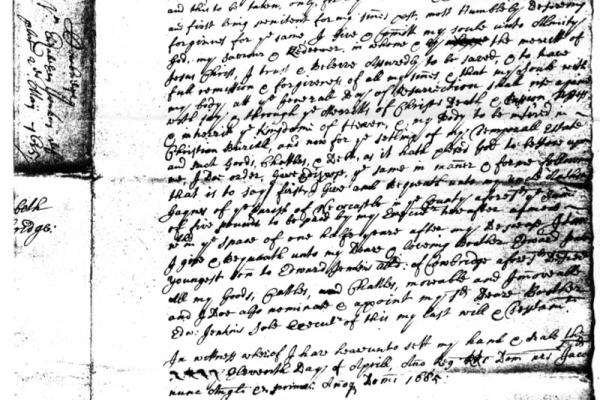 and this to be taken, only for
and first being penitent for my sinnes past, most Humbly Desireing
forgivness for ye same I Give & Comitt my soule unto Allmity
God, my Saviour & Redeemer, in whome & by the meritt of
Jesus Christ, I trust & Beleeve Assuredly to be saved, & to have
full remission & forgiveness of all my sinnes, & that my soule with
my body, att ye Generall Day of Resurrection shall rise againe
with joy, & through ye Merritts of Christs Death & Passion
& inherritt ye Kingdome of Heaven, & my Body to be interred in
Christian Buriall, and now for ye setling of my Temporall Estate
and such Goods, Chattles, & Debts, as it hath pleased God to bestow upon
me, I Doe order, Give & dispose, ye same in manner & forme following
that is to say first, I Give and Bequeath unto
of ye Parish of in ye County aforesd ye summe
of five pounds to be paid by my Executor hereafter
in ye space of one halfe yeare after my Decease,
I give & Bequeath unto my Deare & loveing Brother Edward
youngest son to Edward Jenkin of Cowbridge aforesd
All my Goods, Cattles, and Chattles, moveable and Imoveable
and I Doe also nominate & appoint my sd Deare Brother
Edw. Jenkin Sole Executr of this my last will & Testamt
In witness whereof I have hereunto sett my hand & seale the
Eleventh Day of Aprill, Ano Reg Dom nri Jaco
nunc Angli & primi Anoq Domi 1685
1685
beth
ridge: